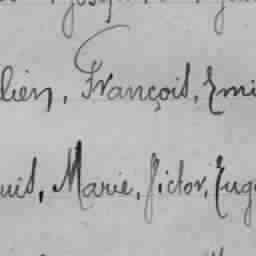 lien, François, Emi
uis, Marie, Victor, Eug